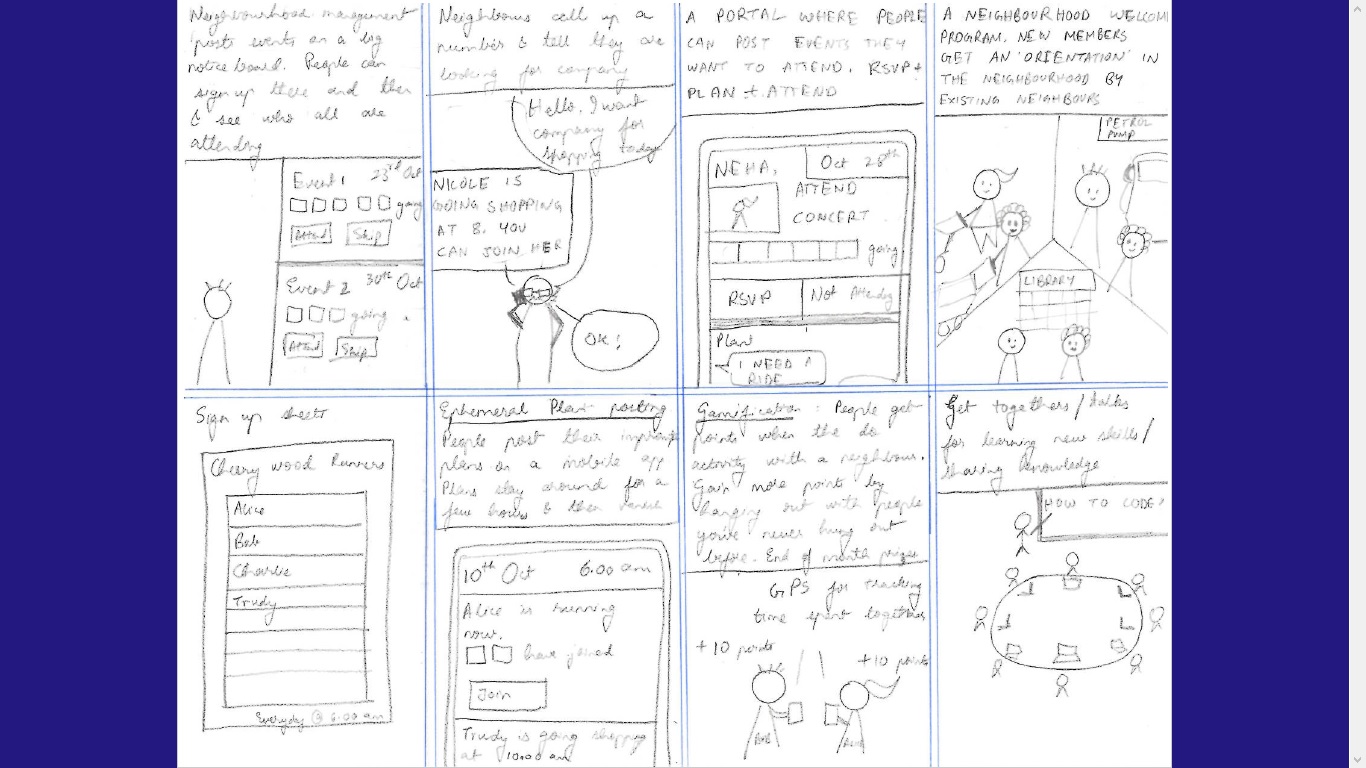 Neighbourhood management
posts events on a big
notice board. People can
sign up there and then
& see who all are
attending
Event 1 23rd Oct
going
Attend Skip
Event 2 30th Oct
going
Attend Skip
Neighbours call up a
number & tell they are
looking for company
Hello. I want
company for
shopping today
NICOLE IS
GOING SHOPPING
AT 8. YOU
CAN JOIN HER
OK!
A PORTAL WHERE PEOPLE
CAN POST EVENTS THEY
WANT TO ATTEND. RSVP +
PLAN + ATTEND
NEHA, Oct 25th
ATTEND
CONCERT
going
RSVP Not Attending
Plan
I NEED A
RIDE
A NEIGHBOURHOOD WELCOM
PROGRAM. NEW MEMBERS
GET AN 'ORIENTATION' IN
THE NEIGHBOURHOOD BY
EXISTING NEIGHBOURS
PETROL
PUMP
LIBRARY
Sign up sheets
Cherry wood Runners
Alice
Bob
Charlie
Trudy
Everyday @ 6:00 am
Ephemeral Plan posting
People post their impromptu
plans on a mobile app
Plans stay around for a
few hours & then vanish
10th Oct 6.00 am
Alice is running
now.
have joined
Join
Trudy is going shopping
at 10:00 am
Gamification : People get
points when the do
activity with a neighbour.
Gain more points by
hanging out with people
you've never hung out
before. End of month prizes
GPS for tracking
time spent together
+10 points
+10 points
Bob Alice
Get togethers/talks
for learning new skills/
sharing knowledge
HOW TO CODE?